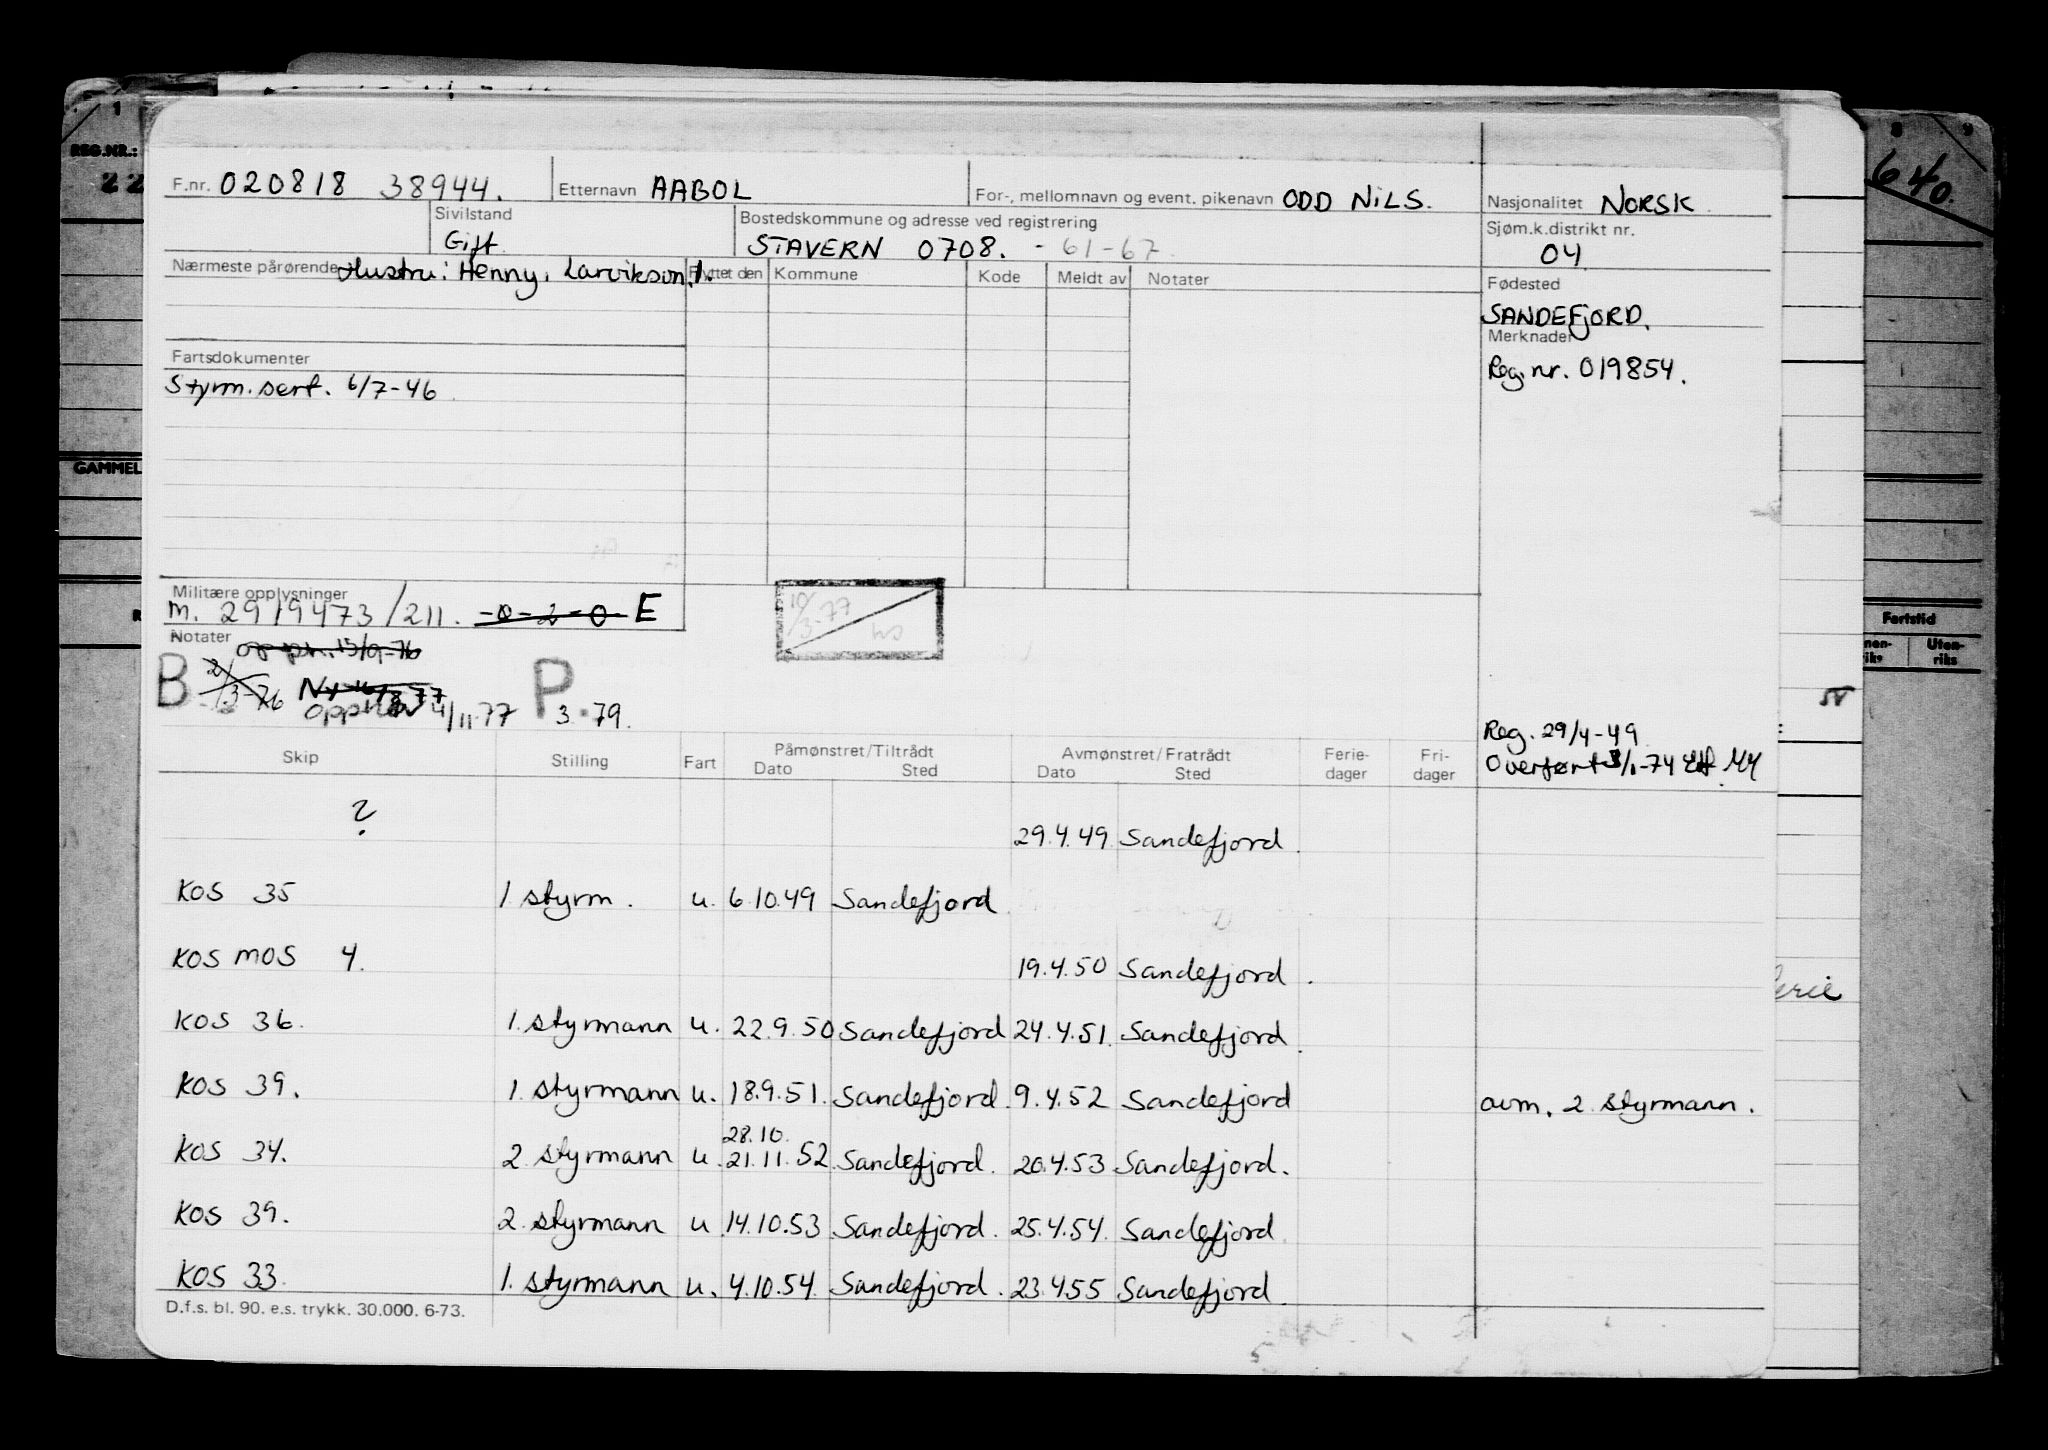 1
REG.NR.:
22
8 9
640.
GAMMEL
Fartstid
Uten-
riks
F.nr. 020818 38944.
Etternavn AABOL
For-, mellomnavn og event. pikenavn ODD NILS.
Nasjonalitet NORSK
Sivilstand
Gift
Bostedskommune og adresse ved registrering
STAVERN 0708. - 61-67
Sjøm.k.distrikt nr.
04
Nærmeste pårørende Hustru: Henny,
Flyttet den
Kommune
Kode
Meldt av
Notater
Fødested
SANDEFJORD.
Merknader
Reg.nr. 019854.
Fartsdokumenter
Styrm.sert. 6/7-46
Militære opplysninger
m. 2919473/211. -0-2-0- E
Notater
opph. 15/9-76
B 2/3-76
4/11.77
P 3.79.
10/3-77
Reg. 29/4-49
Overført 3/1-74
Skip
Stilling
Fart
Påmønstret/Tiltrådt
Dato Sted
Avmønstret/Fratrådt
Dato Sted
Ferie-
dager
Fri-
dager
? 29.4.49 Sandefjord.
KOS 35 1 styrm. u. 6.10.49 Sandefjord
KOS MOS 4. 19.4.50 Sandefjord.
KOS 36. 1. styrmann u. 22.9.50 Sandefjord 24.4.51. Sandefjord.
KOS 39. 1. styrmann u. 18.9.51. Sandefjord. 9.4.52 Sandefjord avm. 2 styrmann.
28.10.
KOS 34. 2 styrmann u. 21.11.52 Sandefjord. 20.4.53 Sandefjord.
KOS 39. 2 styrmann u. 14.10.53 Sandefjord. 25.4.54. Sandefjord
KOS 33. 1. styrmann u. 4.10.54. Sandefjord. 23.4.55 Sandefjord.
D.f.s. bl. 90. e.s. trykk. 30.000. 6-73.